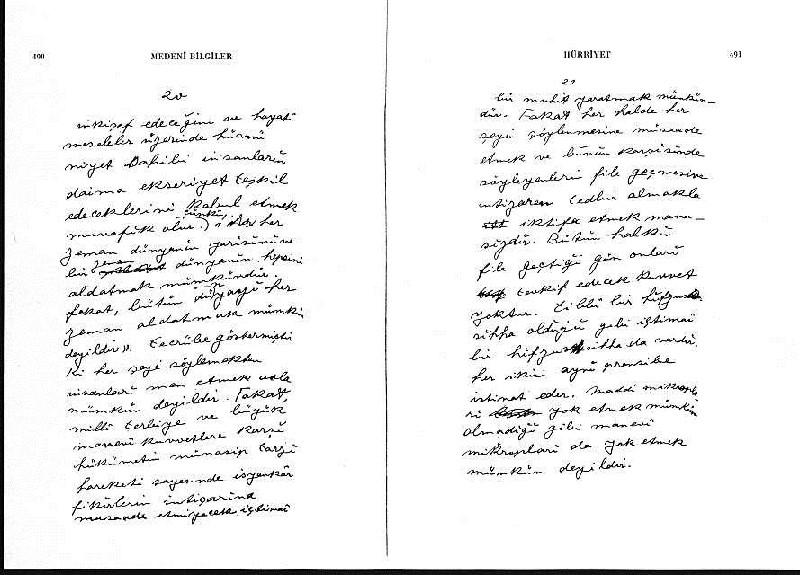 400
MEDENİ BİLGİLER
20
inkişaf edeceğini ve hayati
meseleler üzerinde hüsnü
niyet sahibi insanların
daima ekseriyet teşkil
edeceklerini kabul etmek
muvafık olur. çünki, her
zaman dünyanın yarısını ve
bir zaman dünyanın hepsini
aldatmak mümkündür.
fakat, bütün dünyayı her
zaman aldatmak mümkün
değildir». Tecrübe göstermişti
ki her şeyi söylemekten
insanları men etmek asla
mümkün değildir. Fakat,
milli terbiye ve büyük
manevi kuvvetlere karşı
hükümetin münasip tarzı
hareketi sayesinde isyankâr
fikirlerin intişarına
musaade etmiyecek içtimaî
HÜRRİYET
491
21
bir muhit yaratmak mümkün-
dür. Fakat her halde her
şeyi söylenmesine müsaade
etmek ve bunun karşısında
söyleyenlerin file geçmesine
intizaren tedbir almakla
iktifa etmek mana-
sızdır. Bütün halkın
file geçtiği gün onları
tevkif edecek kuvvet
yoktur. Tibbi bir hıfzus
sıhha olduğu gibi içtimai
bir hıfzus sıhha da vardır.
her ikisi aynı prensibe
istinat eder. Maddi mikropla
rı yok etmek mümkün
olmadığı gibi manevi
mikropları da yok etmek
mümkün değildir.